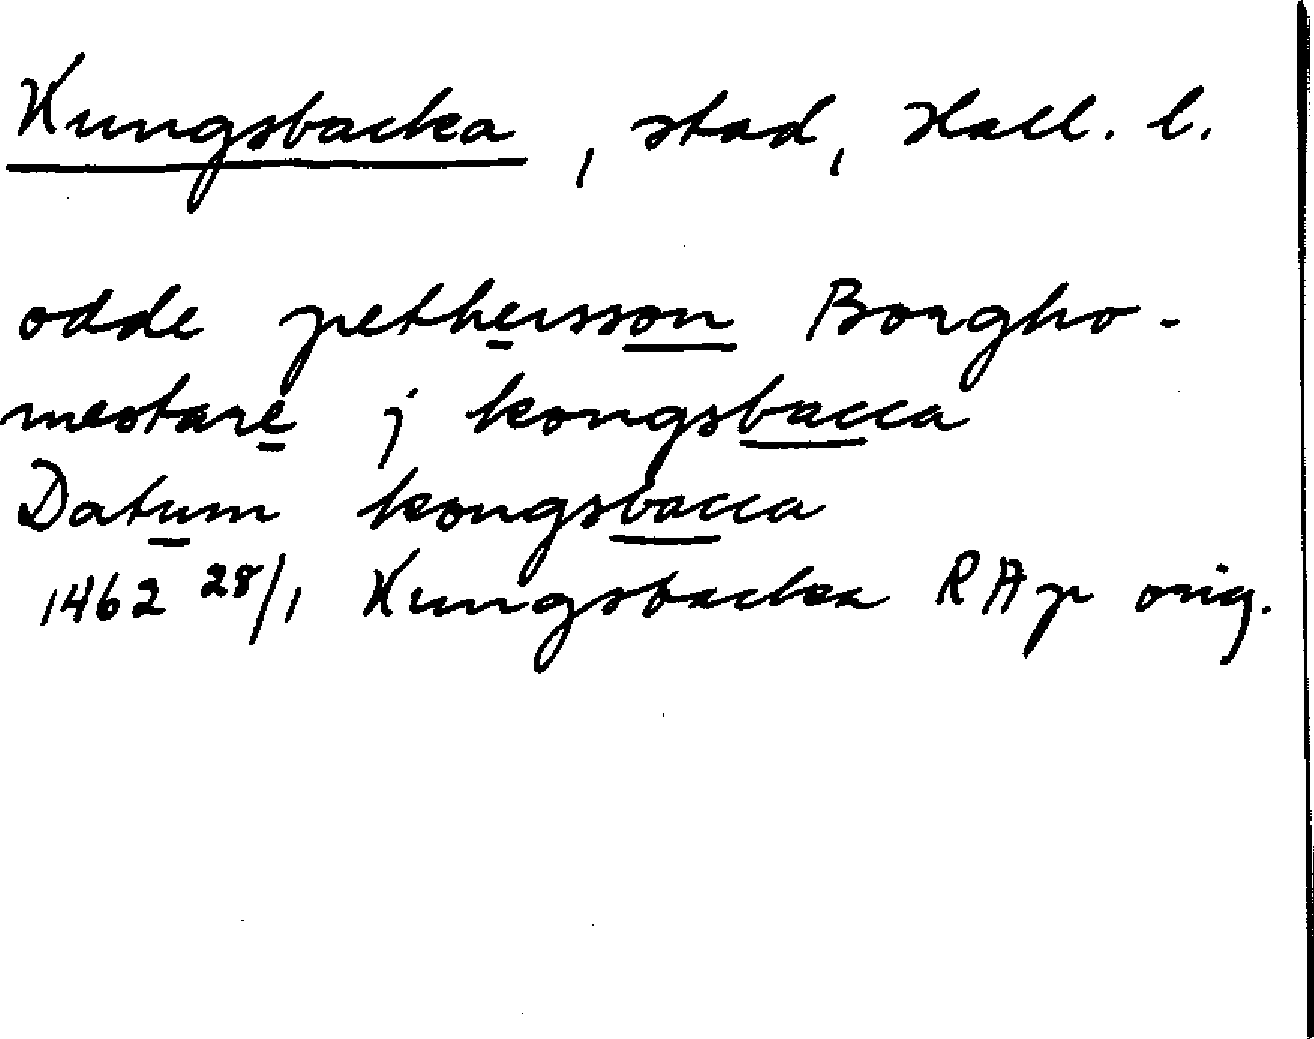 Kungsbacka, stad, Hall. l.
odde pethersson Borgho-
mestare j kongsbacca
Datum kongsbacca
1462 28/1 Kungsbacka RAp orig.